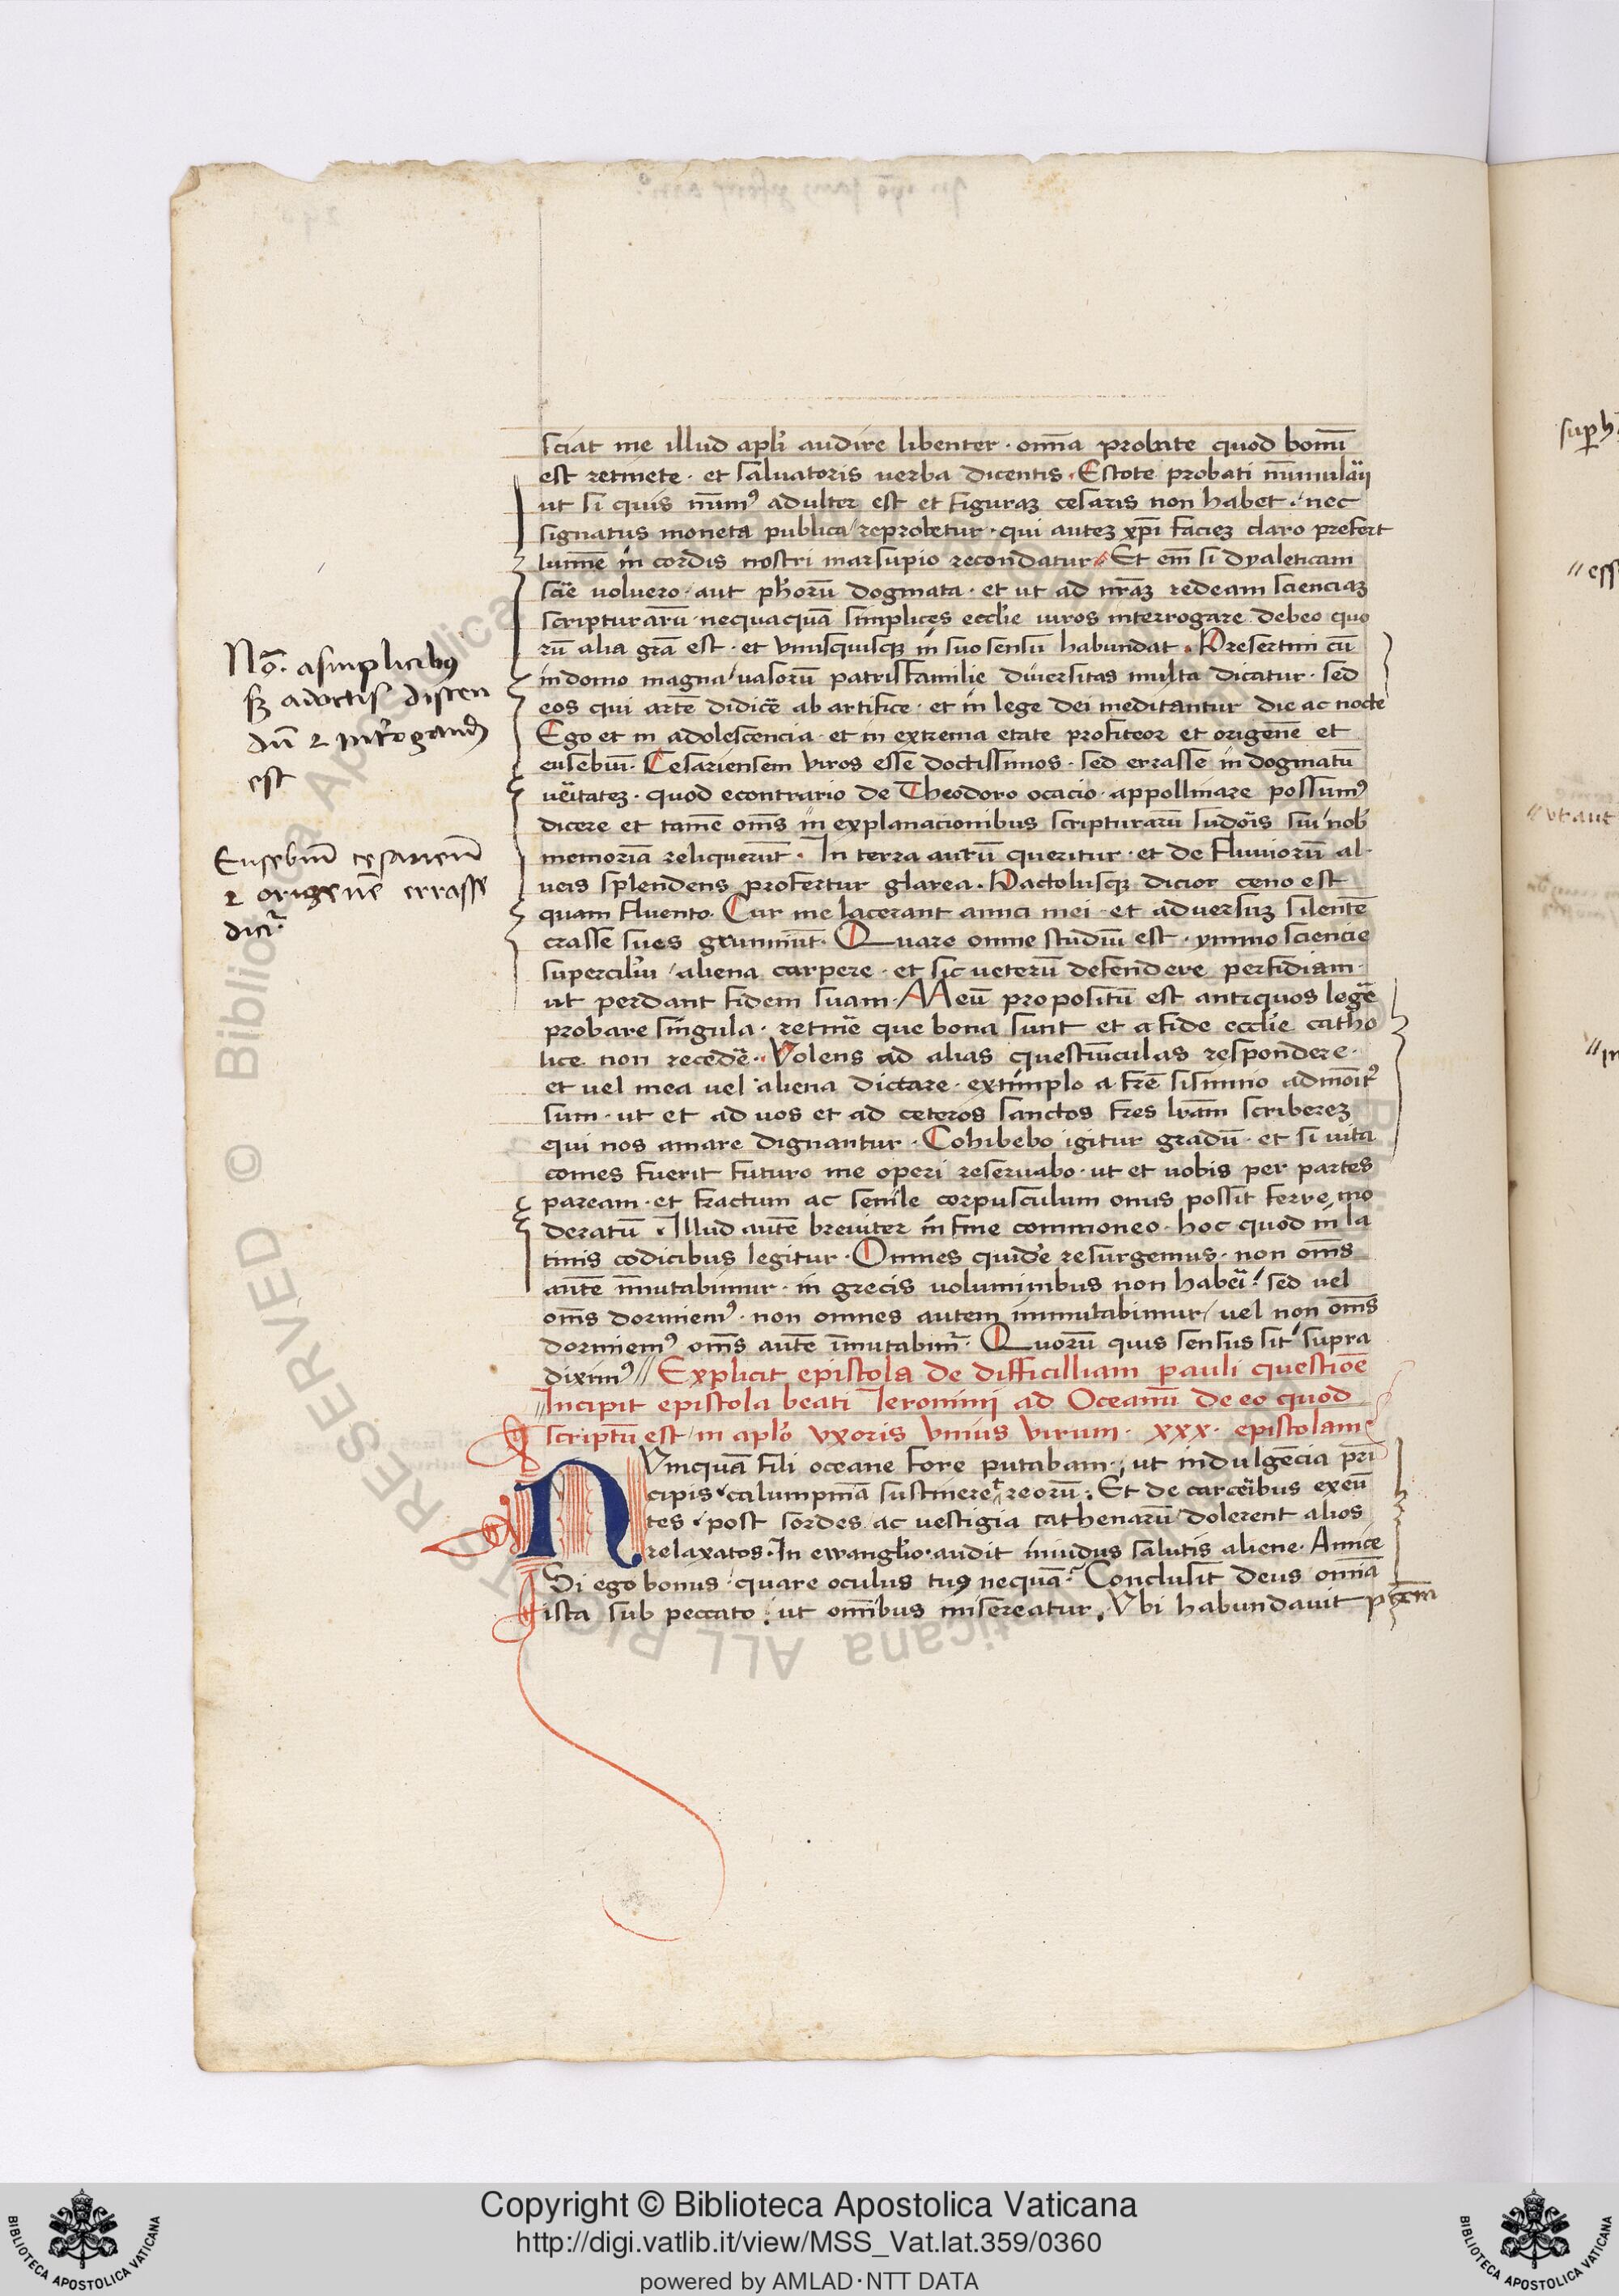 sciat me illud apl'i audire libenter · om̅ia probate quod bonu̅
est retinete · et saluatoris uerba dicentis · Estote probati nu̅mularij
ut si quis nu̅mꝰ adulter est et figuraꝫ cesaris non habet · nec
signatus moneta publica / reprobetur · qui auteꝫ xp̅i facieꝫ claro prefert
lumi̅e in cordis nostri marsupio recondatur · Et em̅ si dyaleticam
sci̅e uoluero · aut ph'orū dogmata · et ut ad nr̅aꝫ redeam scienciaꝫ
scripturarū nequaquā simplices eccl'ie uiros interrogare debeo quo
rū alia gr̅a est · et vnusquisqꝫ in suo sensu̅ habundat · Presertim cū
in domo magna / uasorū patrisfamilie diuersitas multa dicatur · sed
eos qui arte̅ didice̅ ab artifice · et in lege dei meditantur die ac nocte
Ego et in adolescencia · et in extrema etate profiteor et origene̅ et
eusebiū · Cesariensem viros esse doctissimos · sed errasse in dogmatū
ue̅itateꝫ · quod econtrario de Theodoro ocacio · appollinare possumꝰ
dicere et tame̅ om̅s in explanacionibus scripturarū sudo̅is sui nob̅
memoria̅ reliquerūt · In terra aurū queritur · et de fluuiorū al
ueis splendens profertur glarea · Pactolusqꝫ dicior ceno est
quam fluento · Cur me lacerant amici mei · et aduersuꝫ silente̅
crasse sues grunniu̅t · Quare omne studiū est · ymmo sciencie
superciliu̅ / aliena carpere · et sic ueterū defendere perfidiam ·
ut perdant fidem suam · Meū propositū est antiquos lege̅
probare singula · retine̅ que bona sunt et a fide eccl'ie catho
lice non recede̅ · Volens ad alias questiūculas respondere ·
et vel mea vel aliena dictare · extimplo a fr̅e sisinnio admo̅itꝰ
sum · ut et ad uos et ad ceteros sanctos fr̅es lr̅am scribereꝫ
qui nos amare dignantur · Cohibebo igitur gradū · et si uita
comes fuerit futuro me operi reseruabo · ut et uobis per partes
paream · et fractum ac senile corpusculum onus possit ferre mo
deratū · Illud aute̅ breuiter in fine commoneo · hoc quod in la
tinis codicibus legitur · Omnes quide̅ resurgemus · non om̅s
aute̅ im̅utabimur · in grecis uoluminibus non habe̅t · sed vel
om̅s dormiemꝰ · non omnes autem immutabimur / vel non om̅s
dormiemꝰ om̅s aute̅ im̅utabimr̅ · Quorū quis sensus sit supra
diximꝰ // Explicit epistola de difficilliam pauli questio̅e
Incipit epistola beati Ieronimij ad Oceanū de eo quod
scriptū est / in apl'o vxoris vnius virum · xxx · epistolam
NVnquā fili oceane fore putabam · ut indulge̅cia pri̅
cipis calumpniā sustinere̅t reorū · Et de carce̅ibus exeū
tes · post sordes ac vestigia cathenarū dolerent alios
relaxatos · In ewangl'io · audit inuidus salutis aliene · Amice
Si ego bonus · quare oculus tuꝰ nequā · Conclusit deus omnia̅
ista sub peccato · ut om̅ibus misereatur · Vbi habundauit pcc̅m
No̅ · a simplicibꝰ
sꝫ a doctis discen
dū ⁊ int'rogandū
est
Eusebiū cesarien̅
⁊ origene̅ errasse
dicit̅
Copyright © Biblioteca Apostolica Vaticana
http://digi.vatlib.it/view/MSS_Vat.lat.359/0360
powered by AMLAD·NTT DATA
BIBLIOTECA APOSTOLICA VATICANA
BIBLIOTECA APOSTOLICA VATICANA